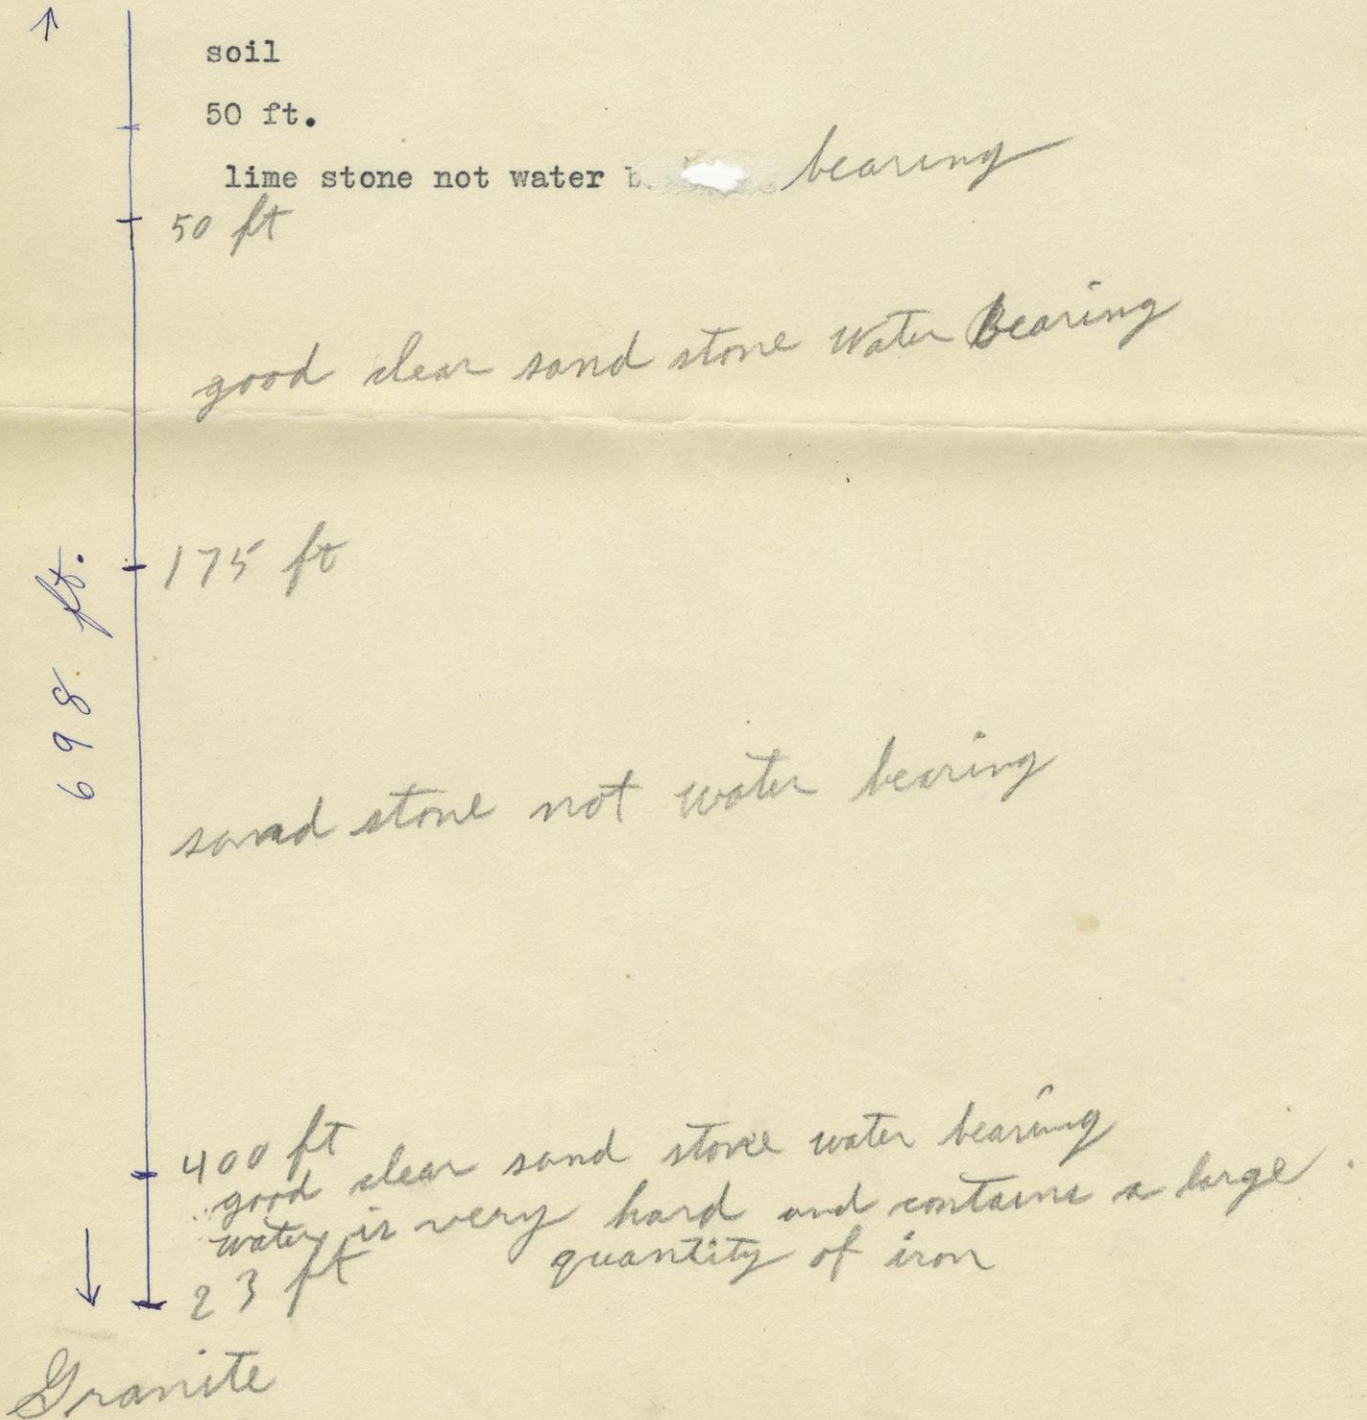 soil
50 ft.
lime stone not water b bearing
50 ft
good clear sand stone water bearing
175 ft
698 ft.
sand stone not water bearing
400 ft
good clear sand stone water bearing
water is very hard and contains a large
quantity of iron
23 ft
Granite